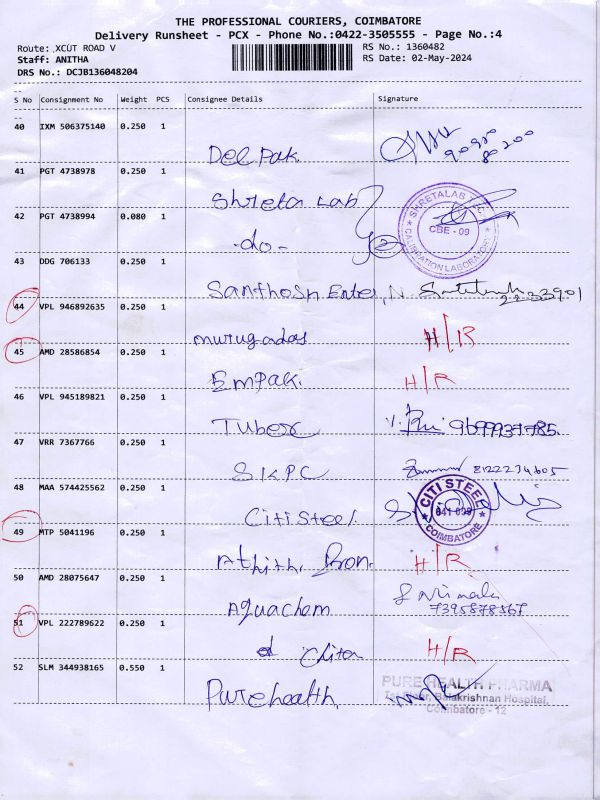 THE PROFESSIONAL COURIERS, COIMBATORE
Delivery Runsheet - PCX - Phone No.:0422-3505555 - Page No.:4
Route: XCUT ROAD V
RS No.: 1360482
Staff: ANITHA
RS Date: 02-May-2024
DRS No.: DCJB136048204
S No Consignment No Weight PCS Consignee Details Signature
40 IXM 506375140 0.250 1
Delpak
41 PGT 4738978 0.250 1
Shreta Lab
42 PGT 4738994 0.080 1
-do- 2
SHRETALAB
CBE - 09
CALIBRATION LABORATORY
43 DDG 706133 0.250 1
Santhosh Enter
44 VPL 946892635 0.250 1
murugadas H/R
45 AMD 28586854 0.250 1
Empak H/R
46 VPL 945189821 0.250 1
Tuberc
47 VRR 7367766 0.250 1
SKPC 8122274605
48 MAA 574425562 0.250 1
Citi Steel
CITI STEEL
COIMBATORE
49 MTP 5041196 0.250 1
Athithi H/R
50 AMD 28075647 0.250 1
Aquachem
7395878567
51 VPL 222789622 0.250 1
Chitra H/R
52 SLM 344938165 0.550 1
Purehealth
PURE HEALTH PHARMA
Ist Floor, Balakrishnan Hospital,
Coimbatore - 12